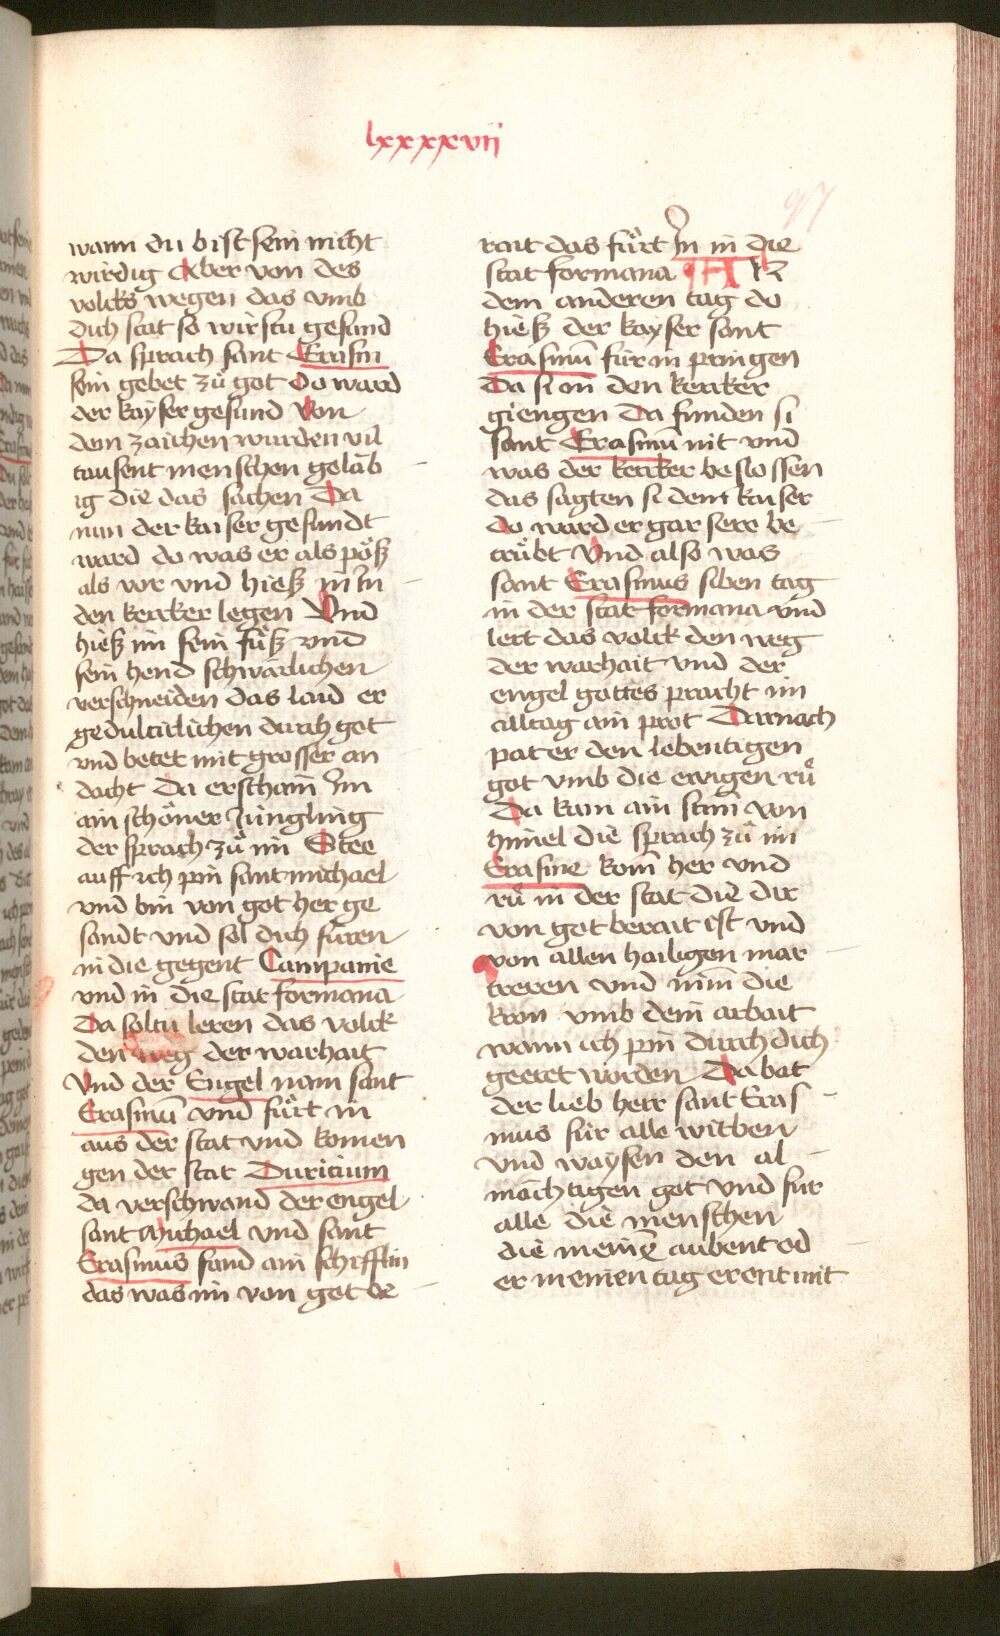 lxxxxvij
97
wann du bist sein nicht
wirdig Aber von des
volcks wegen das vmb
dich stat so wirstu gesund
Da sprach sant Erasm
sein gebet zů got Do ward
der kayser gesund Von
den zaichen wurden vil
tausent menschen gelaub
ig die das sachen Da
nun der kaiser gesundt
ward do was er als pöß
als vor vnd hieß in In
den kerker legen Vnd
hieß im sein fůß vnd
sein hend schwärlichen
verschneiden das laid er
gedultiklichen durch got
vnd betet mit grosser an
dacht Da erschain Im
ain schöner Jüngling
der sprach zů im Stee
auff ich pin sant michael
vnd bin von got her ge
sandt vnd sol dich füren
in die gegent Campanie
vnd in die stat formana
Da soltu leren das volck
den weg der warhait
Vnd der Engel nam sant
Erasmū vnd fůrt in
aus der stat vnd komen
gen der stat Duricium
da verschwand der engel
sant Michael vnd sant
Erasmus fand ain schifflin
das was im von got be
rait das fůrt In in die
stat formana An
dem anderen tag do
hieß der kayser sant
Erasmū für in pringen
Da si in den kerker
giengen Da funden si
sant Erasmū nit vnd
was der kerker beslossen
das sagten si dem kaiser
do ward er gar sere be
trübt Vnd also was
sant Erasmus siben tag
in der stat formana vnd
lert das volck den weg
der warhait vnd der
engel gottes pracht im
alltag ain prot Darnach
pat er den lebentigen
got vmb die ewigen rů
Da kam ain stim von
himel die sprach zů im
Erasine kom her vnd
rů in der stat die dir
von got berait ist vnd
von allen hailigen mar
treren vnd nim die
kron vmb dein arbait
wann ich pin durch dich
geeret worden Da bat
der lieb herr sant Eras
mus für alle witben
vnd waysen den al
mächtigen got vnd für
alle die menschen
die meinē aubent od
er meinen tag erent mit